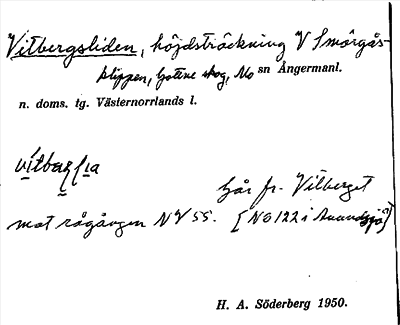 Vitbergsliden, höjdsträckning V Smörgås-
klippen, Gotene skog, No sn Ångermanl.
n. doms. tg. Västernorrlands l.
Går fr. Vitberget
mot rågången NV 55. [NO 122 i Anundsjö]
H. A. Söderberg 1950.